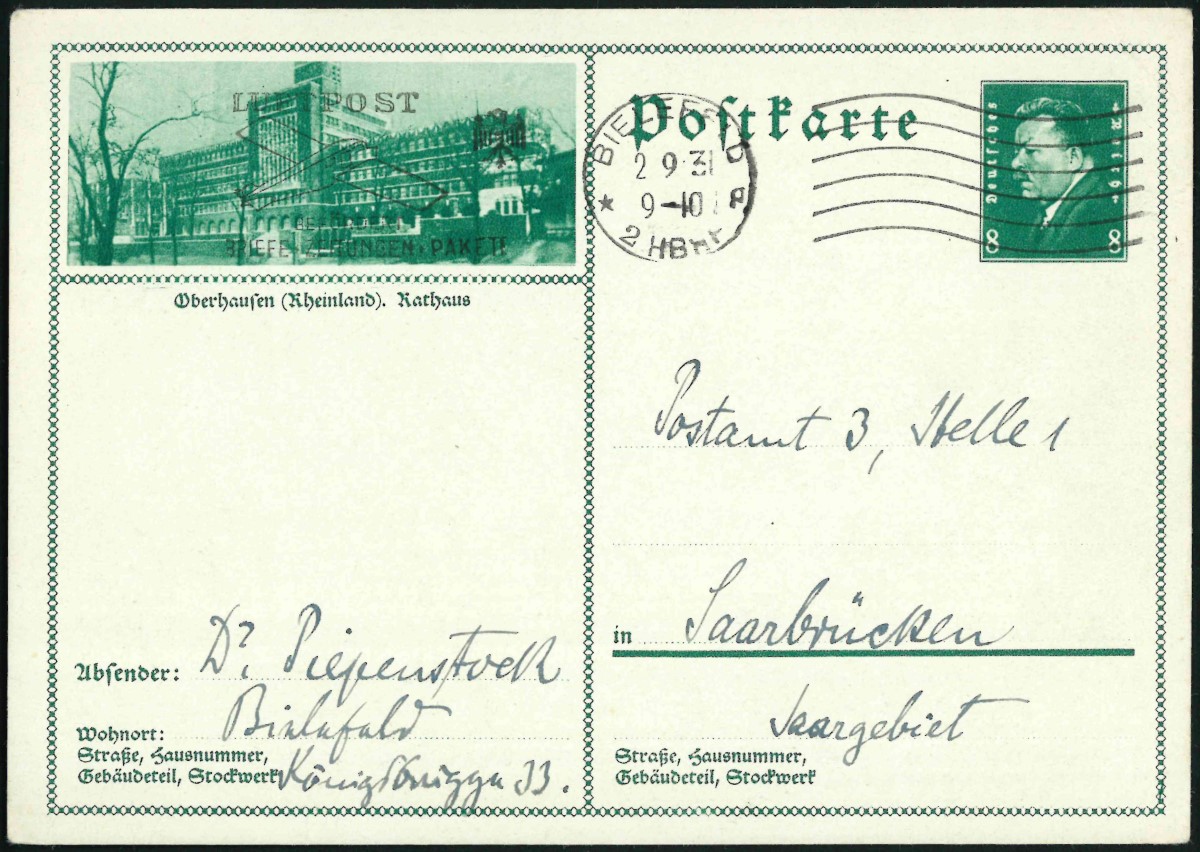 LUFTPOST
BRIEFE, ZEITUNGEN, PAKETE
Oberhauſen (Rheinland). Rathaus
Poſtkarte
BIELEFELD
2 9 31
9-10
* 2 HBhf
Deutsches Reich
8 8
Postamt 3, Stelle 1
in Saarbrücken
Saargebiet
Straße, Hausnummer,
Gebäudeteil, Stockwerk
Abſender: Dr. Piepenstock
Wohnort: Bielefeld
Straße, Hausnummer,
Gebäudeteil, Stockwerk Königsbrügge 33.